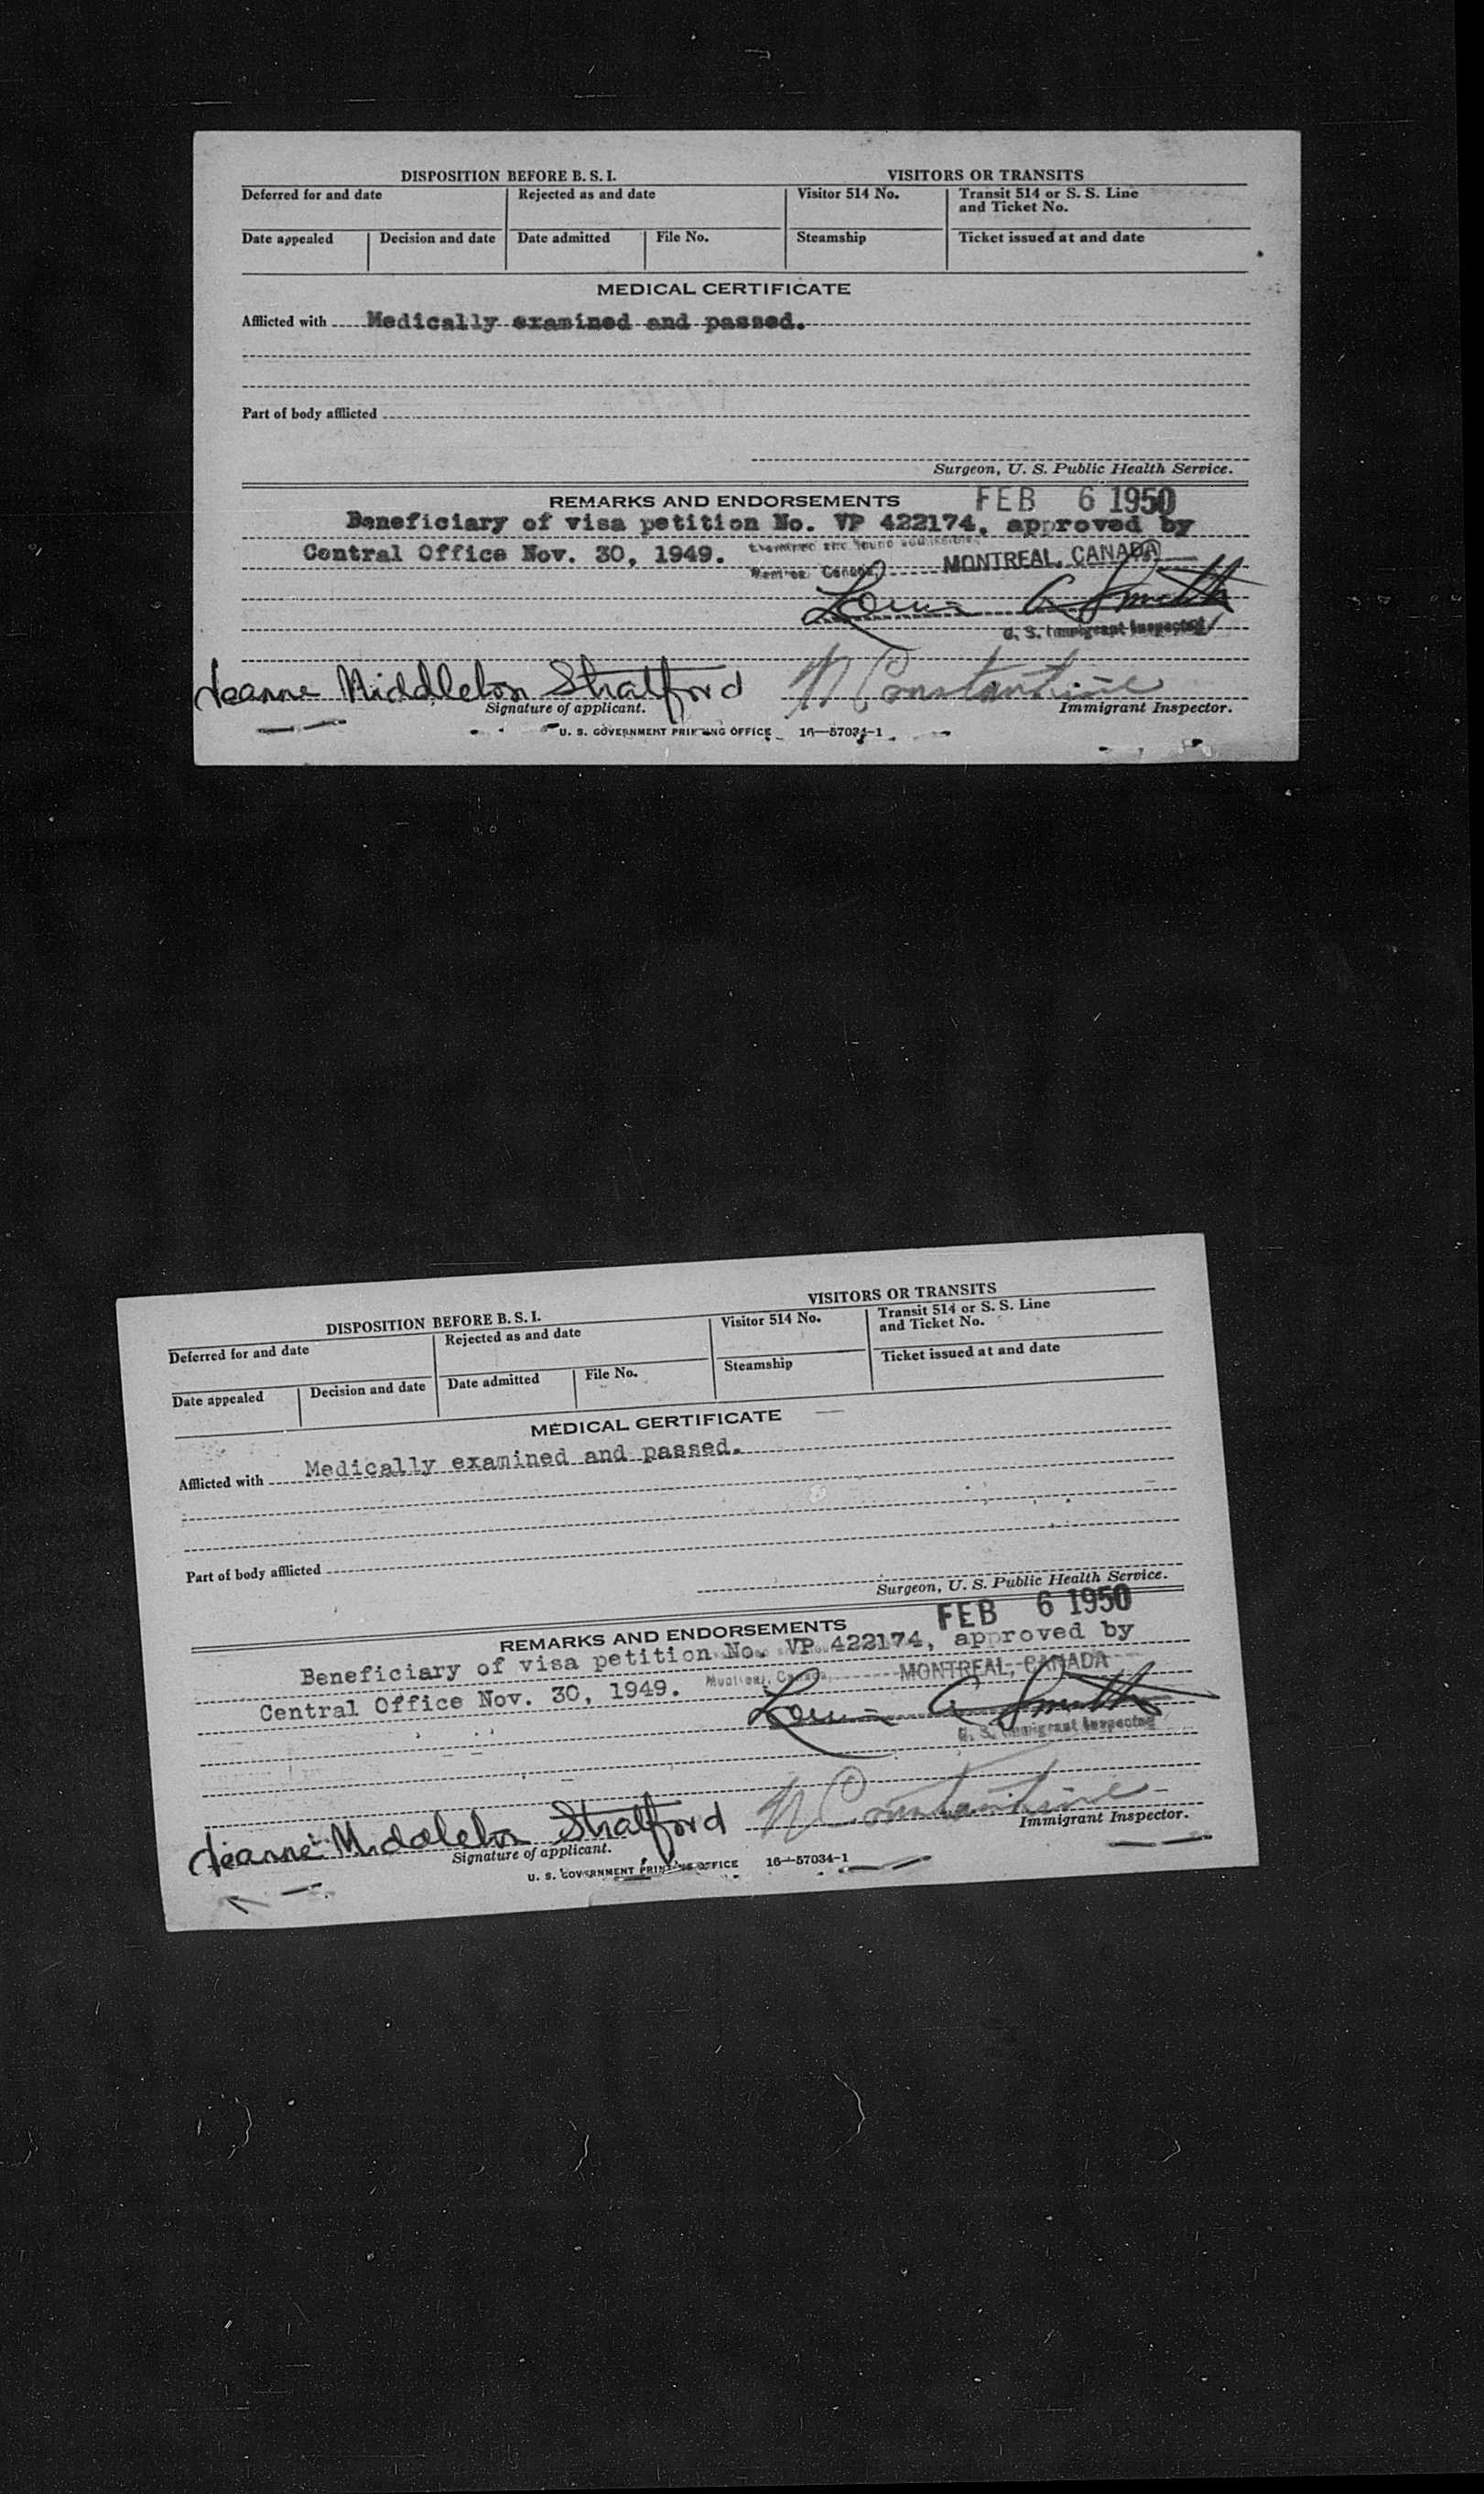 DISPOSITION BEFORE B. S. I. VISITORS OR TRANSITS
Deferred for and date Rejected as and date Visitor 514 No. Transit 514 or S. S. Line
and Ticket No.
Date appealed Decision and date Date admitted File No. Steamship Ticket issued at and date
MEDICAL CERTIFICATE
Afflicted with Medically examined and passed.
Part of body afflicted
Surgeon, U. S. Public Health Service.
REMARKS AND ENDORSEMENTS FEB 6 1950
Beneficiary of visa petition No. VP 422174, approved by
Central Office Nov. 30, 1949. Examined and found admissible
Montreal, Canada, MONTREAL, CANADA
Louis A Smith
U. S. Immigrant Inspector
Jeanne Middleton Stratford N Constantine
Signature of applicant. Immigrant Inspector.
U. S. GOVERNMENT PRINTING OFFICE 16—57034-1
DISPOSITION BEFORE B. S. I. VISITORS OR TRANSITS
Deferred for and date Rejected as and date Visitor 514 No. Transit 514 or S. S. Line
and Ticket No.
Date appealed Decision and date Date admitted File No. Steamship Ticket issued at and date
MEDICAL CERTIFICATE
Afflicted with Medically examined and passed.
Part of body afflicted
Surgeon, U. S. Public Health Service.
REMARKS AND ENDORSEMENTS FEB 6 1950
Beneficiary of visa petition No. VP 422174, approved by
Central Office Nov. 30, 1949. Montreal, Canada, MONTREAL, CANADA
Louis A Smith
U. S. Immigrant Inspector
Jeanne Middleton Stratford N Constantine
Signature of applicant. Immigrant Inspector.
U. S. GOVERNMENT PRINTING OFFICE 16—57034-1